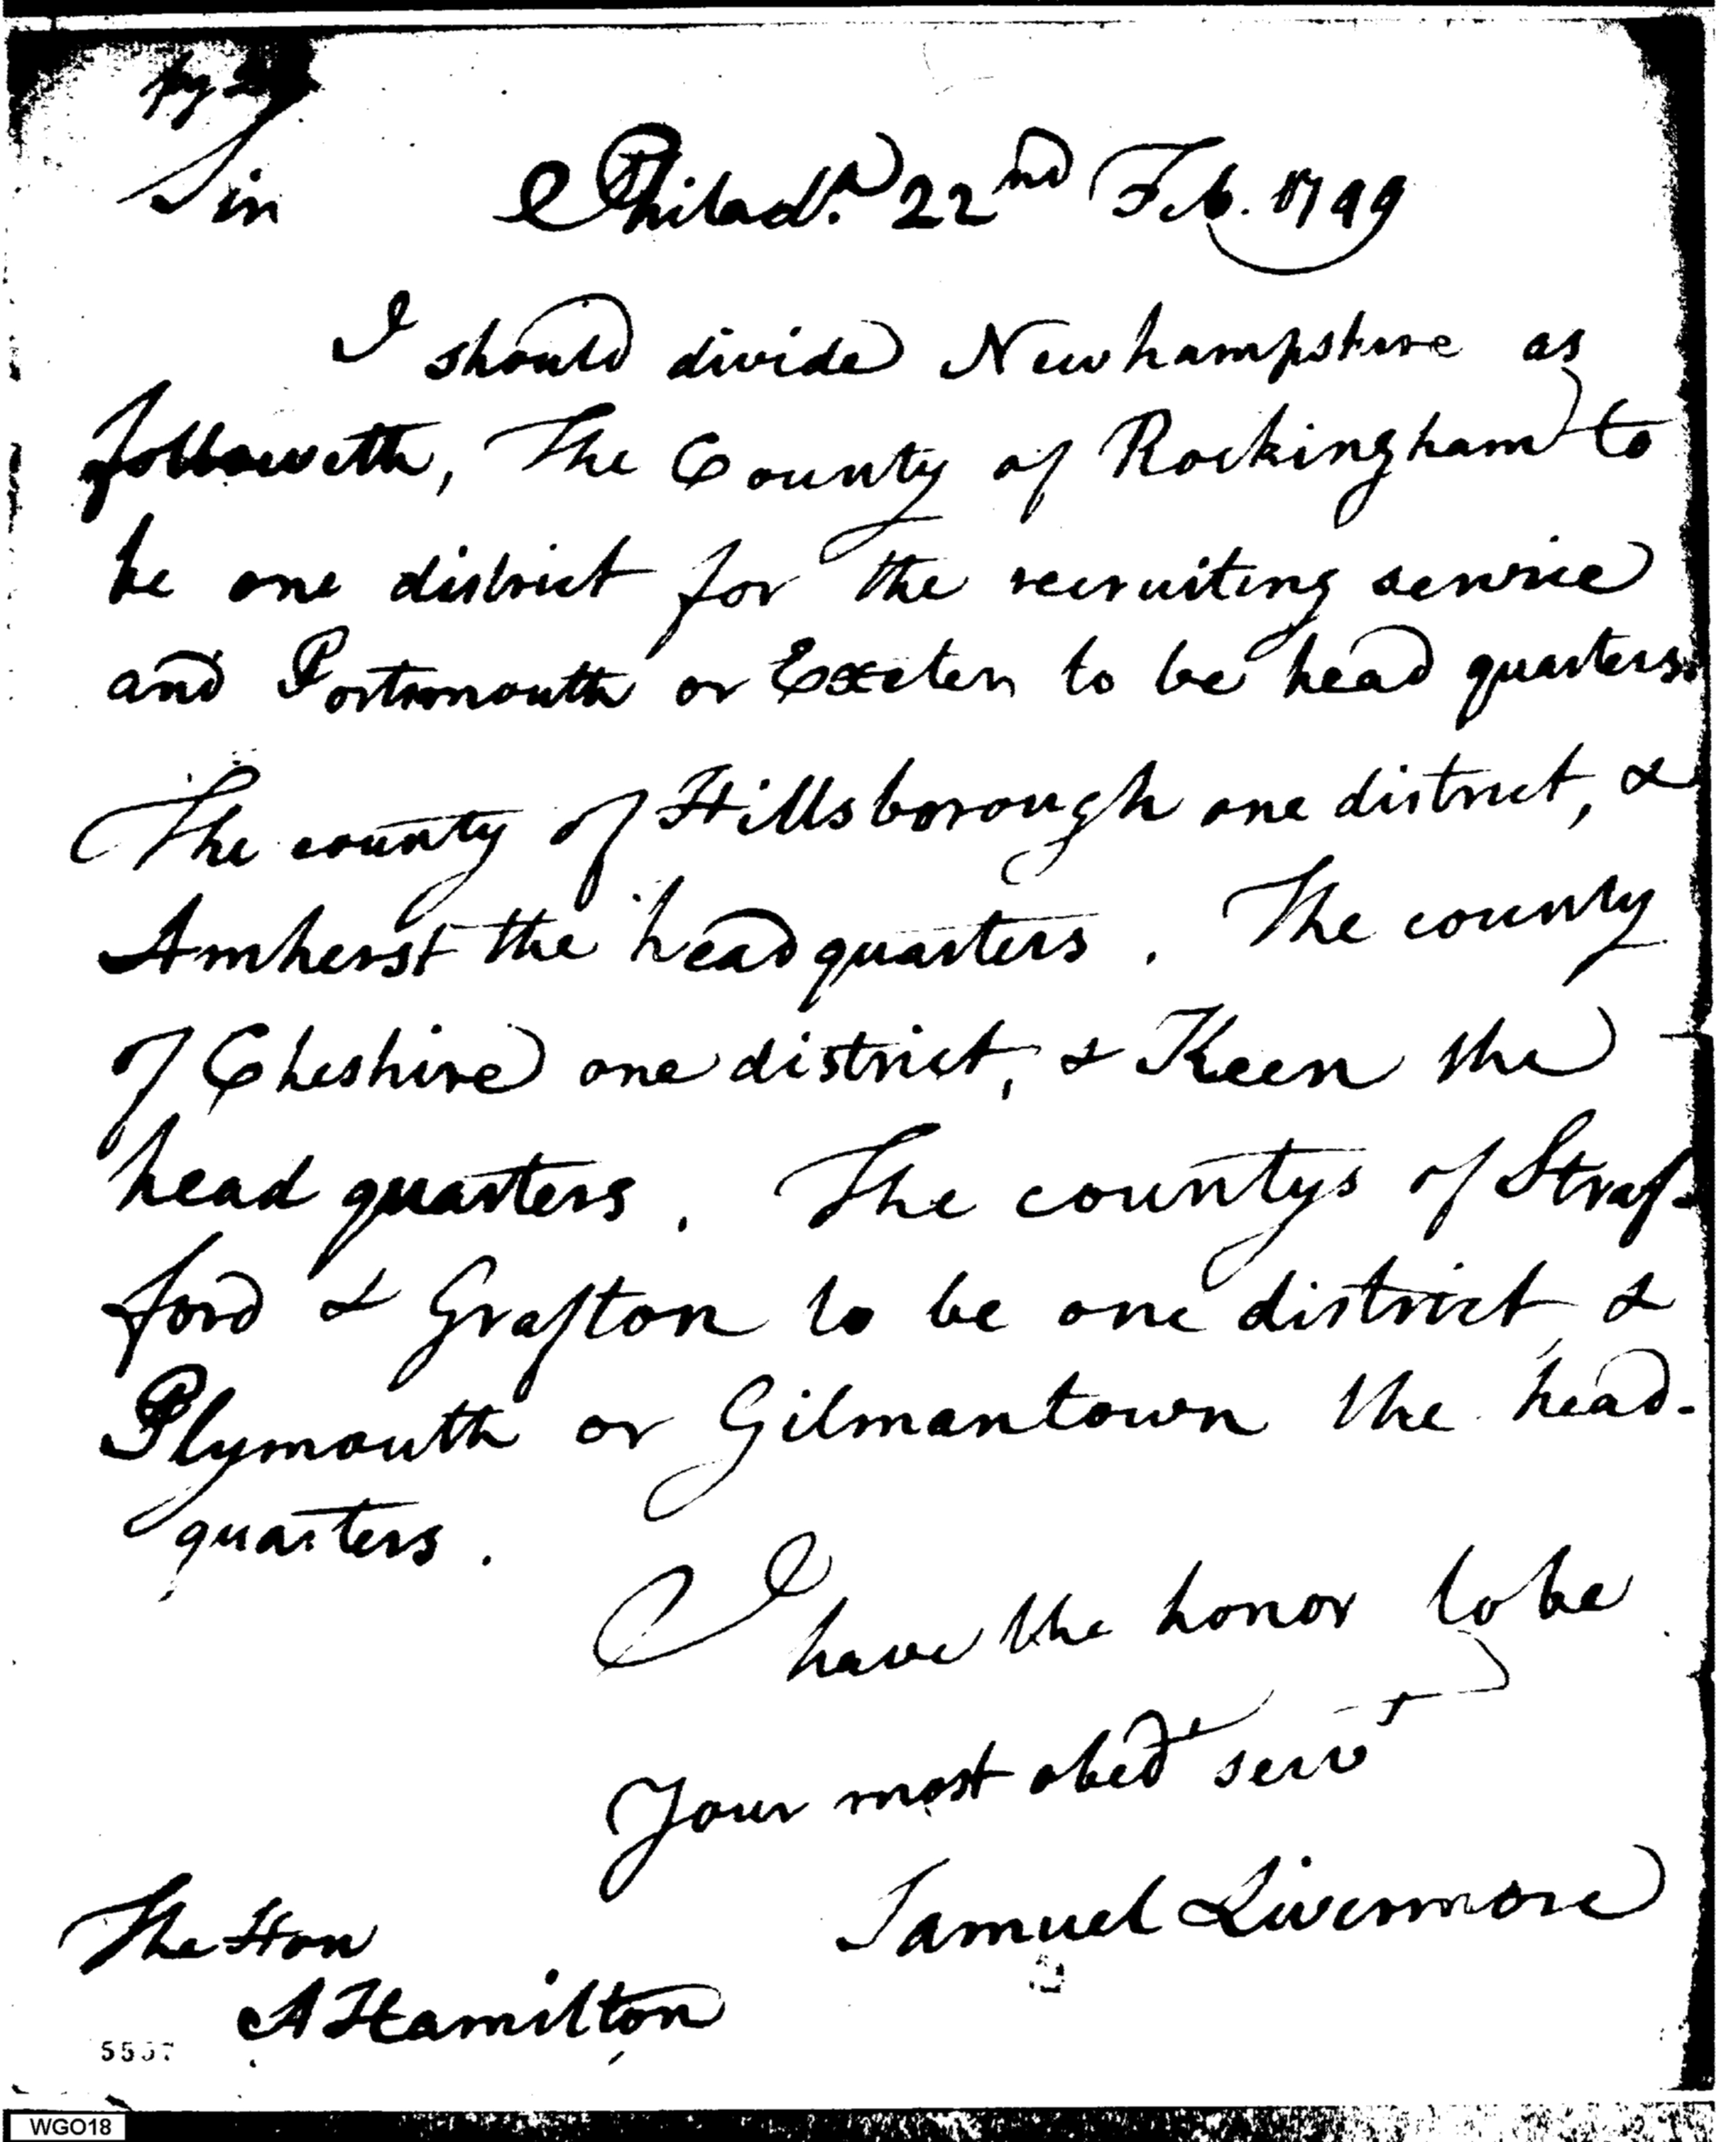 Sir Philad.a 22nd Feb. 1799
I should divide Newhampshire as
followeth, The County of Rockingham to
be one district for the recruiting service
and Portsmouth or Exeter to be head quarters.
The county of Hillsborough one district, &
Amherst the headquarters. The county
of Cheshire one district, & Keen the
head quarters. The countys of Straf-
ford & Grafton to be one district &
Plymouth or Gilmantown the head-
quarters.
I have the honor to be
Your most obedt servt
Samuel Livermore
The Hon
A Hamilton
WGO18